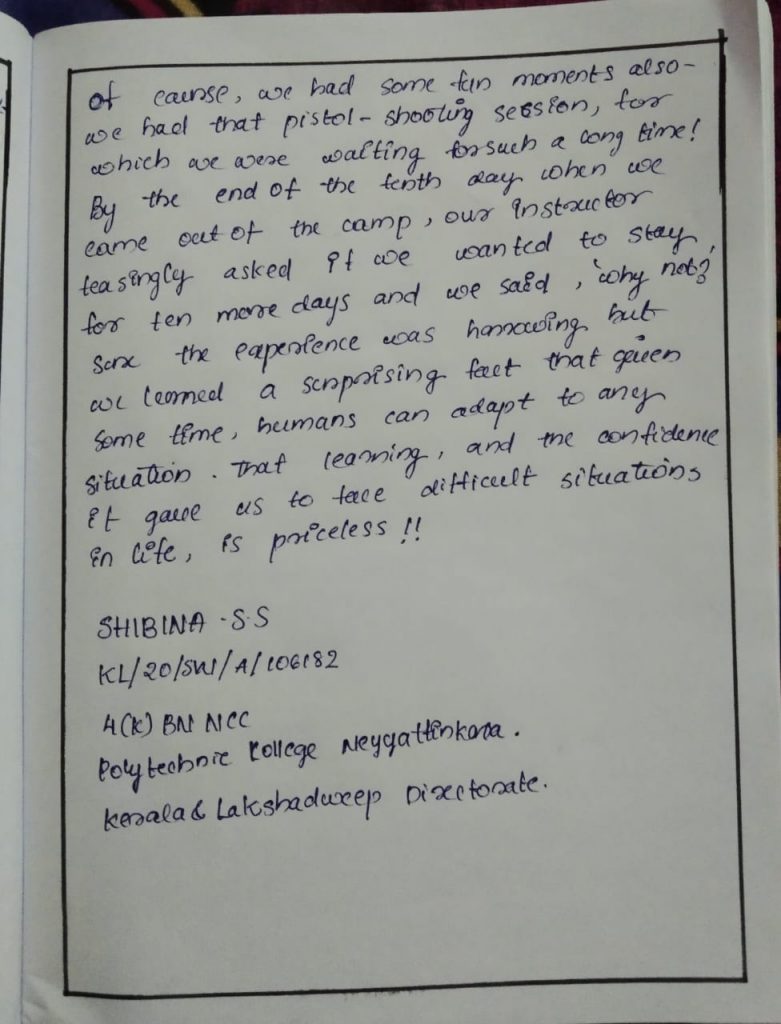 of course, we had some fun moments also-
we had that pistol-shooting session, for
which we were waiting for such a long time!
By the end of the tenth day when we
came out of the camp, our instructor
teasingly asked if we wanted to stay
for ten more days and we said, 'why not?'
Sure the experience was harrowing but
we learned a surprising fact that given
some time, humans can adapt to any
situation. That learning, and the confidence
it gave us to face difficult situations
in life, is priceless!!
SHIBINA .S.S
KL/20/SW/A/106182
4(K) BN NCC
Polytechnic College Neyyattinkara.
Kerala & Lakshadweep Directorate.